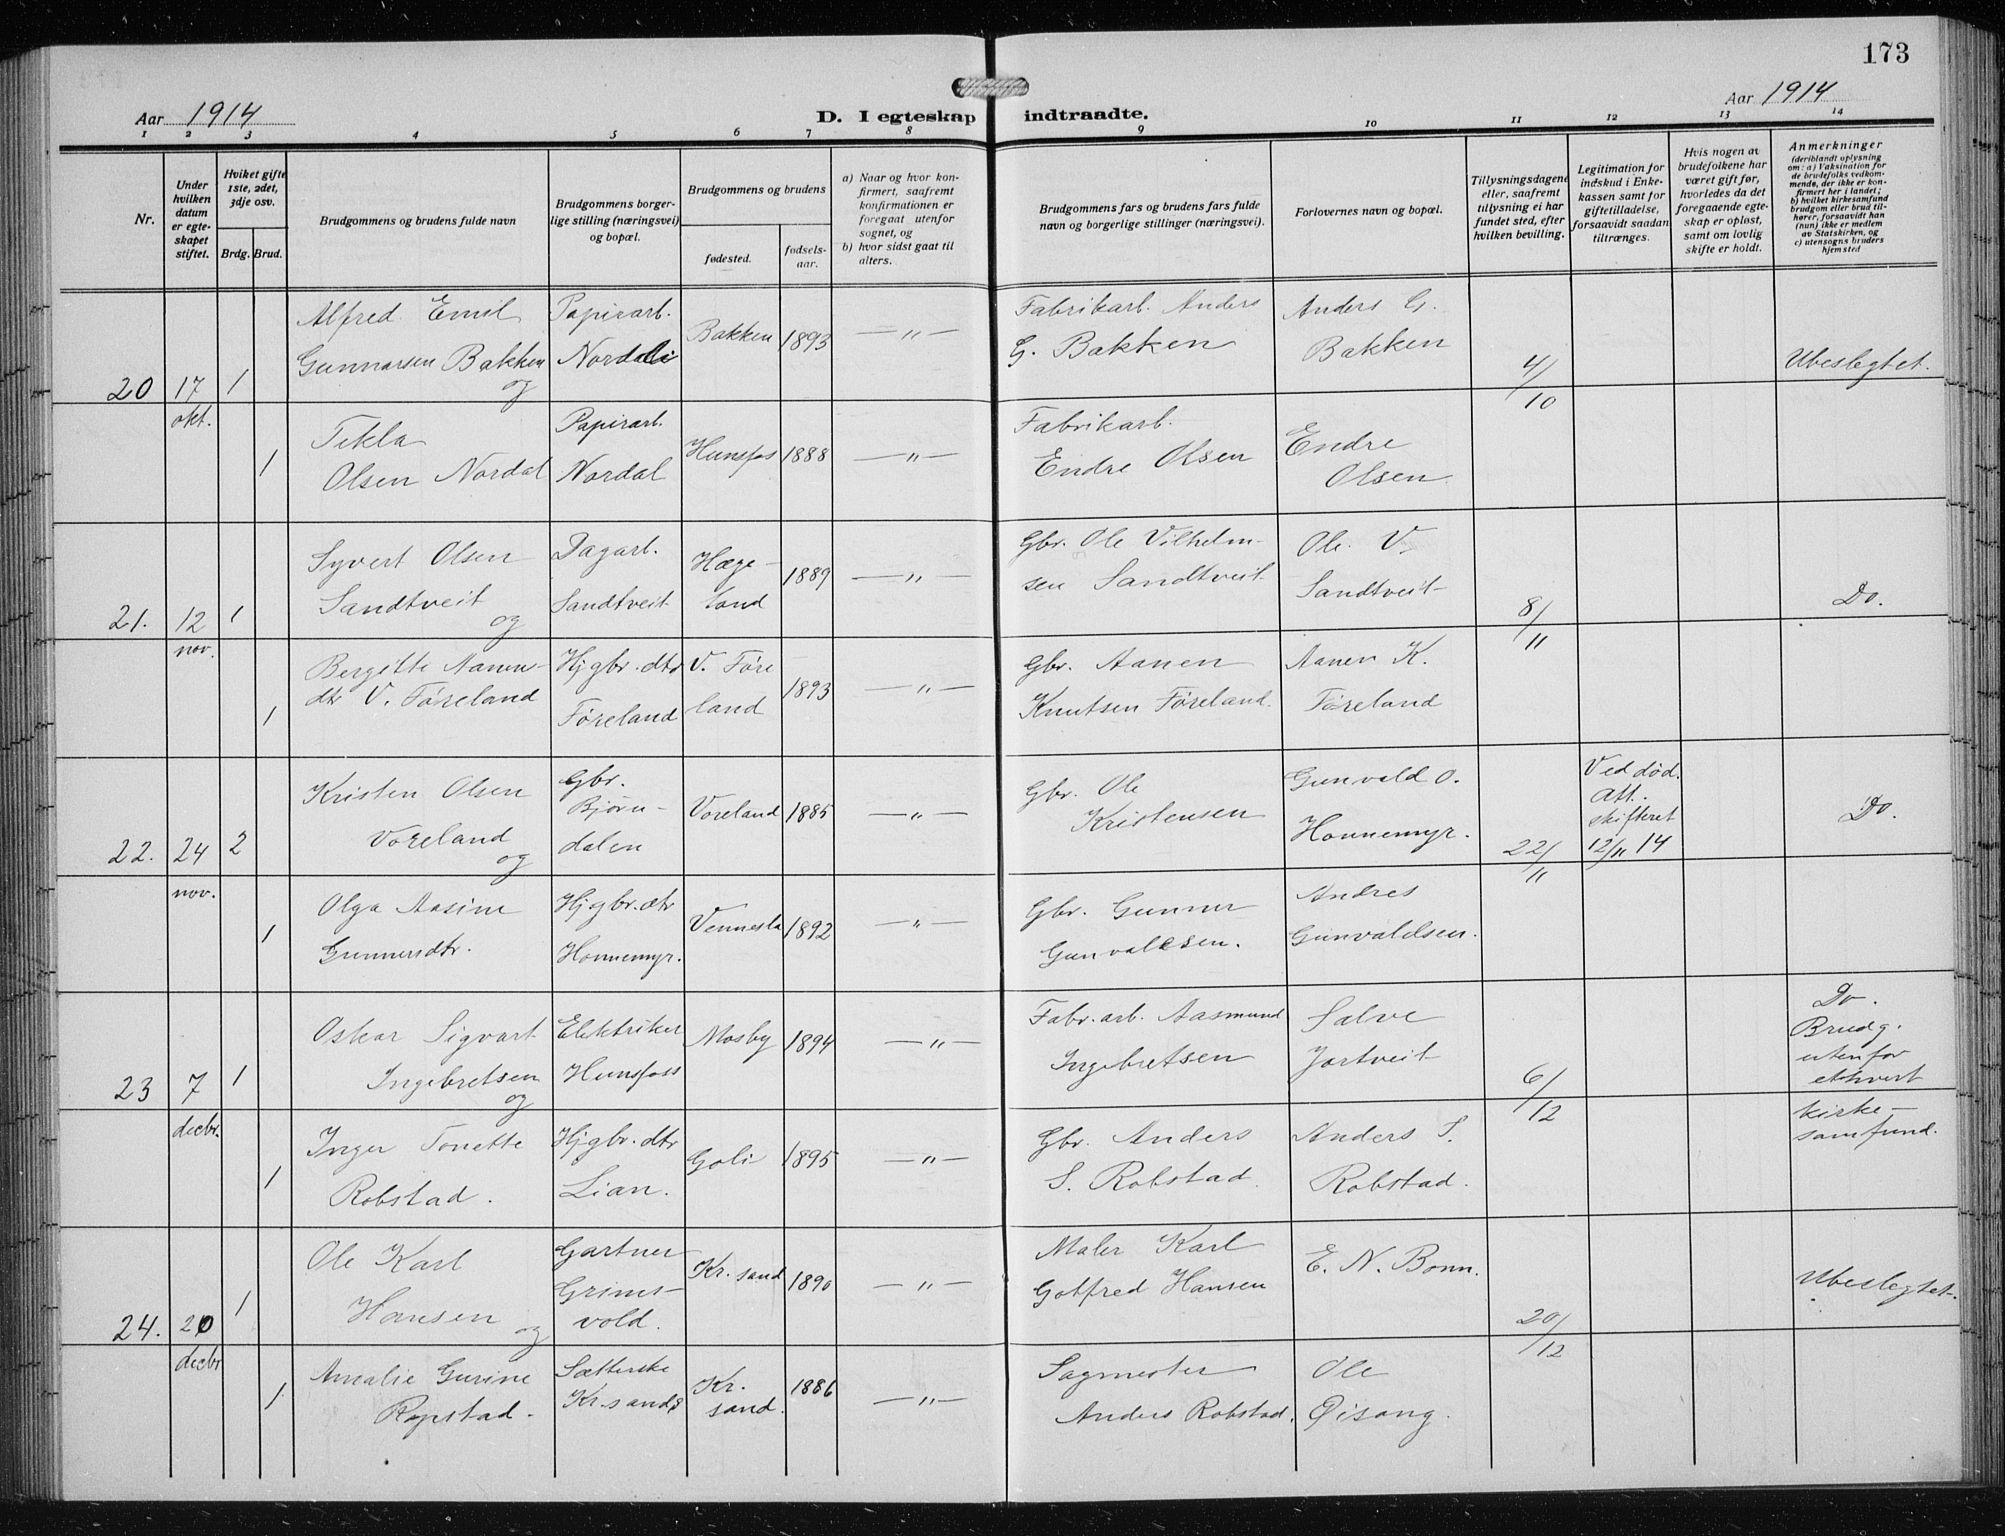 173
Aar 1914
D. I egteskap indtraadte.
Aar 1914
1 2 3 4 5 6 7 8 9 10 11 12 13 14
Nr.
Under hvilken datum er egteskapet stiftet.
Hvilket gifte 1ste, 2det, 3dje osv.
Brdg. Brud.
Brudgommens og brudens fulde navn
Brudgommens borgerlige stilling (næringsvei) og bopæl.
Brudgommens og brudens
fødested.
fødselsaar.
a) Naar og hvor konfirmert, saafremt konfirmationen er foregaat utenfor sognet, og
b) hvor sidst gaat til alters.
Brudgommens fars og brudens fars fulde navn og borgerlige stillinger (næringsvei).
Forlovernes navn og bopæl.
Tillysningsdagene eller, saafremt tillysning ei har fundet sted, efter hvilken bevilling.
Legitimation for indskud i Enkekassen samt for giftetilladelse, forsaavidt saadan tiltrænges.
Hvis nogen av brudefolkene har været gift før, hvorledes da det foregaaende egteskap er opløst, samt om lovlig skifte er holdt.
Anmerkninger
(deriblandt oplysning om: a) Vaksination for de brudefolks vedkommende, der ikke er konfirmert her i landet; b) hvilket kirkesamfund brudgom eller brud tilhører, forsaavidt han (hun) ikke er medlem av Statskirken, og c) utensogns bruders hjemsted
20 17 okt. 1 Alfred Emil Gunnarsen Bakken og
Papirarb. Nordali Bakken 1893 — " —
Fabrikarb. Anders G. Bakken
Anders G. Bakken
4/10
Ubeslegtet.
1 Tekla Olsen Nordal
Papirarb. Nordal Hunsfos 1888 — " —
Fabrikarb. Endre Olsen
Endre Olsen
21. 12 nov. 1 Syvert Olsen Sandtveit og
Dagarb. Sandtveit Hægeland 1889 — " —
Gbr. Ole Vilhelmsen Sandtveit
Ole V. Sandtveit
8/11
Do.
1 Bergitte Aanensdtr V. Føreland
Hjgbr.dtr Føreland V. Føreland 1893 — " —
Gbr. Aanen Knutsen Føreland.
Aanen K. Føreland
22. 24 nov. 2 Kristen Olsen Voreland og
Gbr. Bjørndalen Voreland 1885 — " —
Gbr. Ole Kristensen
Gunvald O. Honnemyr.
22/11
Ved død. Att. skifteret 12/11 14
Do.
1 Olga Aasine Gunnersdtr.
Hjgbr.dtr Honnemyr. Vennesla 1892 — " —
Gbr. Gunner Gunvaldsen.
Andres Gunvaldsen.
23 7 decbr. 1 Oskar Sigvart Ingebretsen og
Elektriker Hunsfoss Mosby 1894 — " —
Fabr. arb. Aasmund Ingebretsen
Salve Jortveit
6/12
Do. Brudg. utenfor ethvert kirkesamfund.
1 Inger Tonette Robstad.
Hjgbr. dtr Lian. Goli 1895 — " —
Gbr. Anders S. Robstad
Anders S. Robstad.
24. 20 decbr 1 Ole Karl Hansen og
Gartner Grimsvold. Kr. sand 1890 — " —
Maler Karl Gotfred Hansen
E. N. Bonn.
20/12
Ubeslegtet.
1 Amalie Gurine Ropstad.
Sætterske Kr.sand Kr. sand. 1886 — " —
Sagmester Anders Robstad.
Ole Øisang.